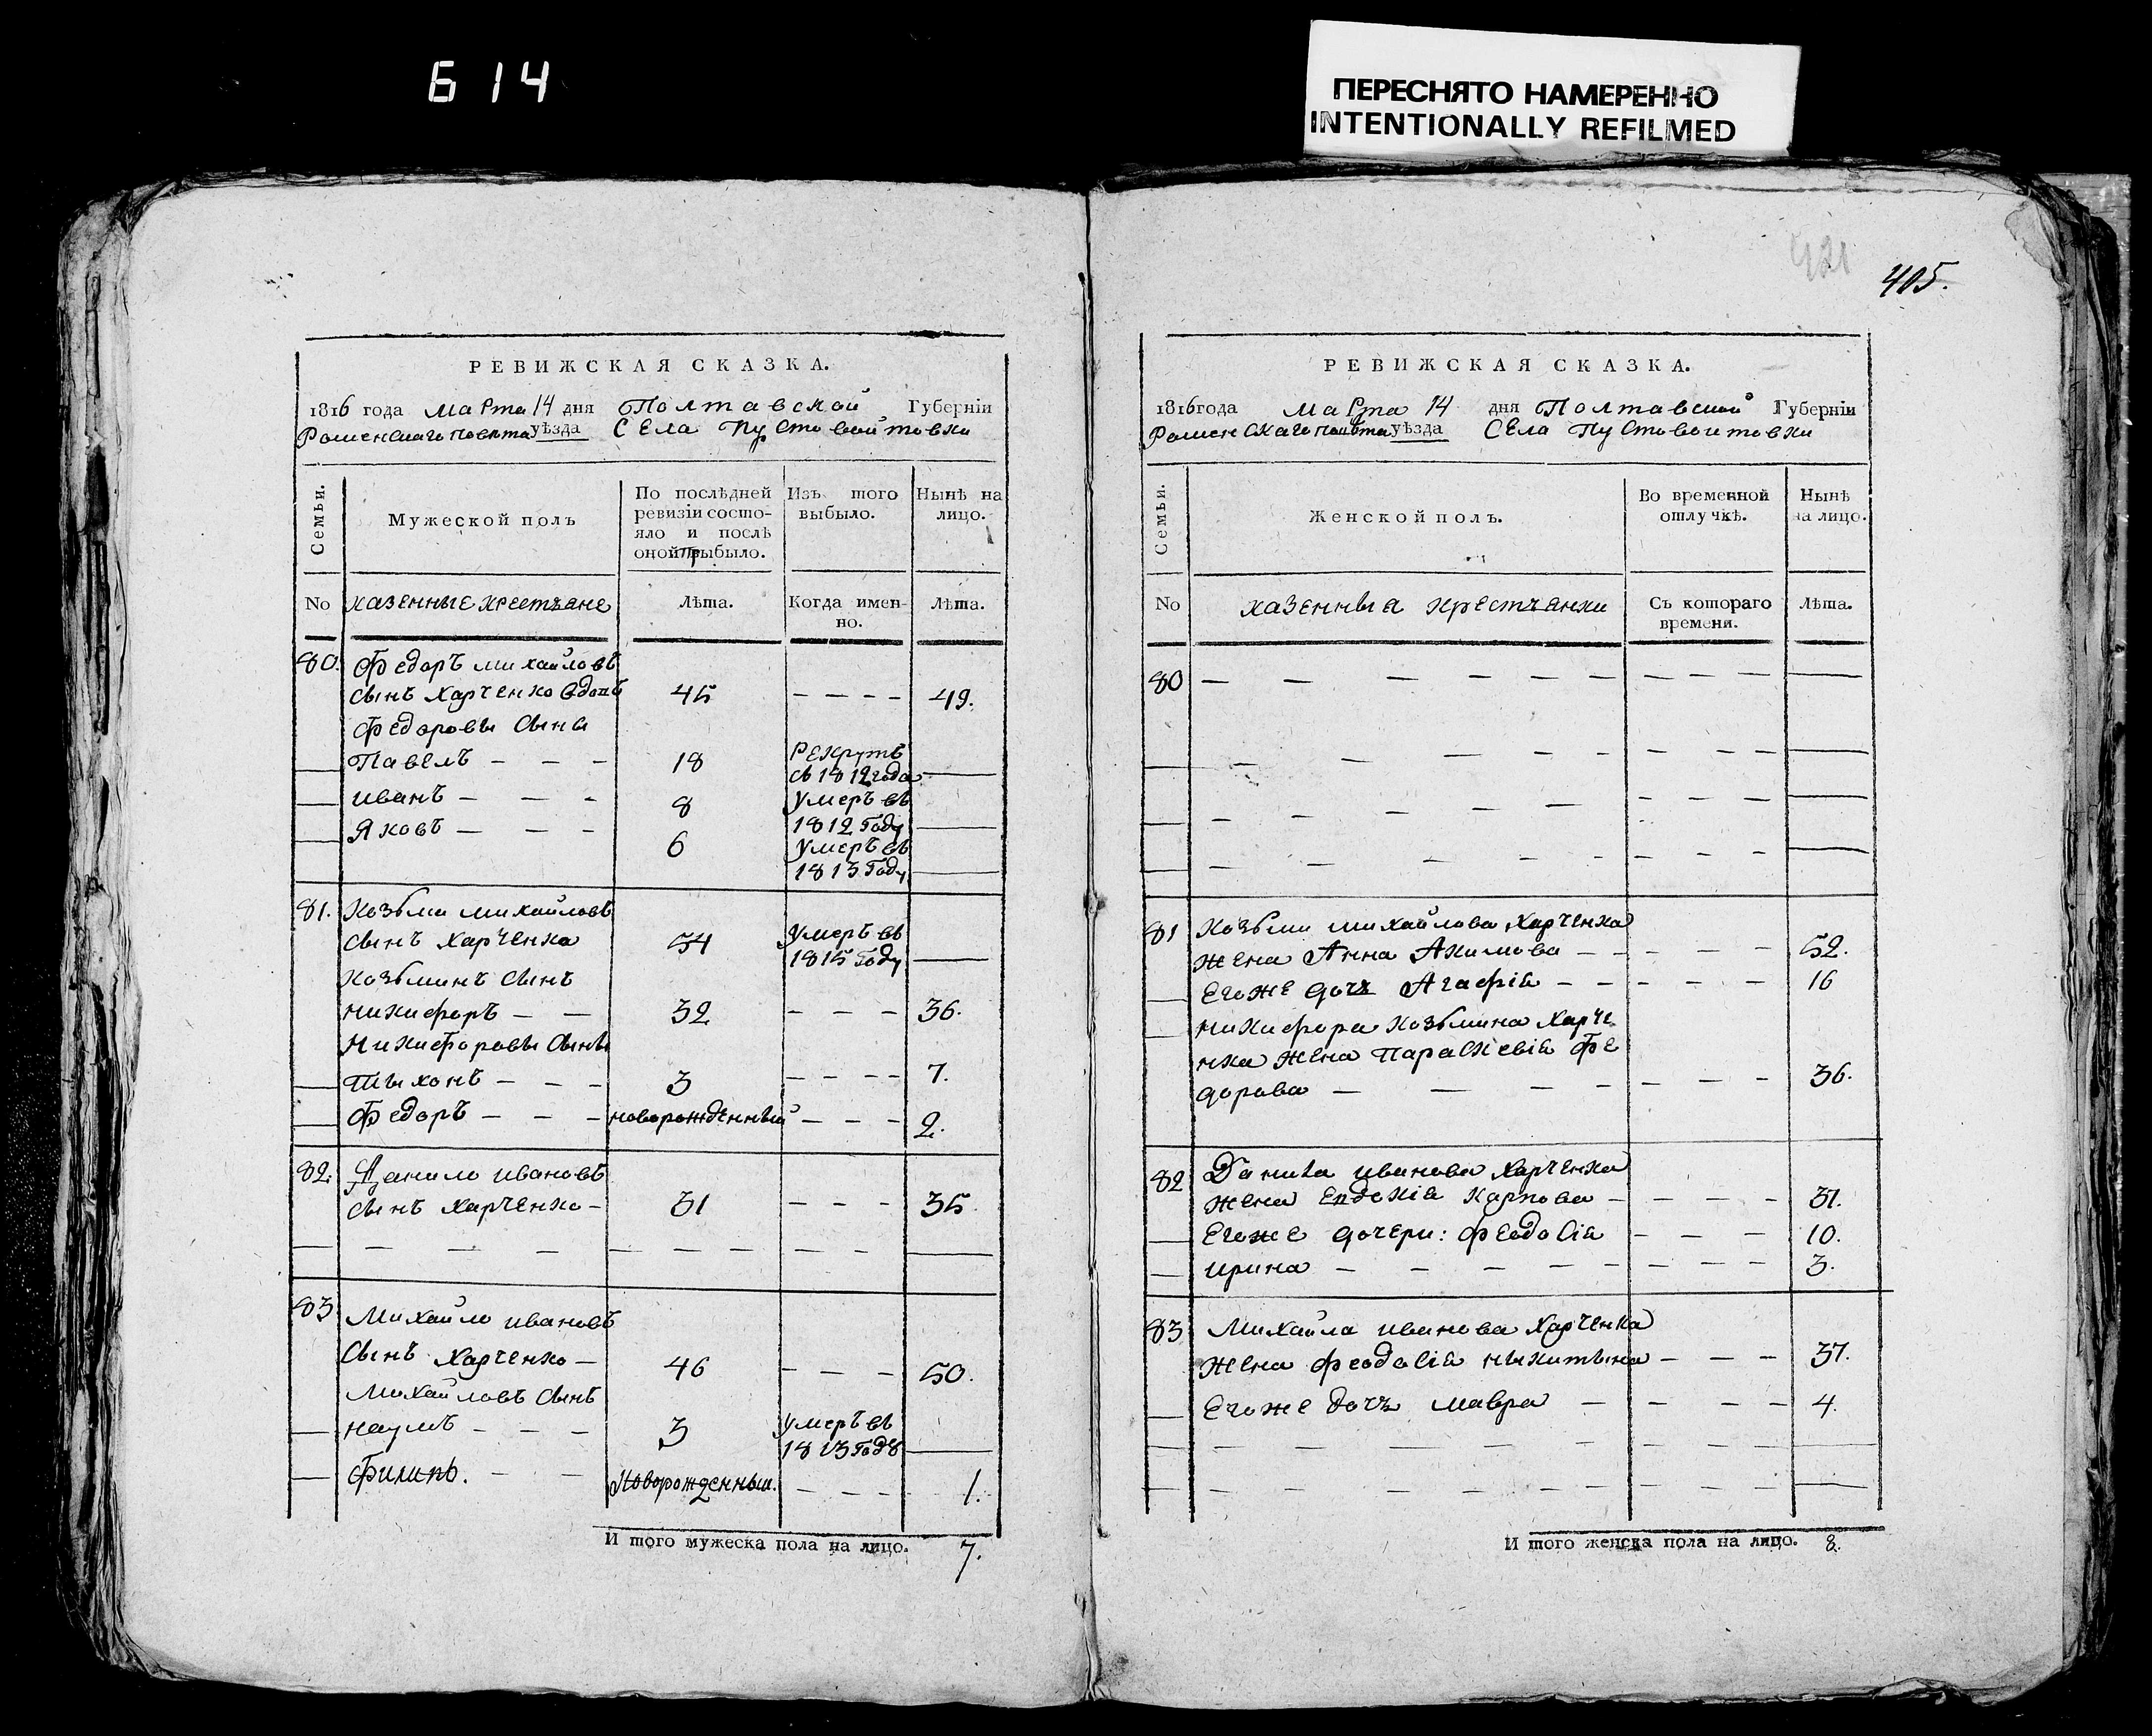 614
ПЕРЕСНЯТО НАМЕРЕННО
INTENTIONALLY REFILMED
РЕВИЖСКАЯ СКАЗКА.
1816 года Марта 14 дня Полтавской Губерніи
Роменскаго повѣта уѣзда Села Пустовойтовки
Семьи.
Мужеской полъ
По послѣдней
ревизіи состо-
яло и послѣ
оной прибыло.
Изъ того
выбыло.
Нынѣ на
лицо.
No казенные крестьяне
Лѣта.
Когда имен-
но.
Лѣта.
80. Федоръ Михайловъ
сынъ Харченко вдовъ 45 49.
Федоровы сыны
Павелъ 18 Рекрутъ
съ 1812 года
Иванъ 8 умеръ въ
1812 году
Яковъ 6 умеръ въ
1813 году
81. Козьма Михайловъ
сынъ Харченко 54 умеръ въ
1815 году
Козьминъ сынъ
Никифоръ 32 36.
Никифоровы сыны
Тыхонъ 3 7.
Федоръ новорожденный 2.
82. Данило Ивановъ
сынъ Харченко 31 35
83 Михайло Ивановъ
сынъ Харченко 46 50.
Михайловъ сынъ
Наумъ 3 умеръ въ
1813 годѣ
Филипъ. Новорожденный. 1.
И того мужеска пола на лицо. 7.
421
405.
РЕВИЖСКАЯ СКАЗКА.
1816 года Марта 14 дня Полтавской Губерніи
Роменскаго повѣта уѣзда Села Пустовойтовки
Семьи.
Женской полъ.
Во временной
отлучкѣ.
Нынѣ
на лицо.
No казенныя крестьянки
Съ котораго
времени.
Лѣта.
80
81 Козьмы Михайлова Харченка
жена Анна Акимова 52.
Егоже дочь Агафія 16
Никифора Козьмина Харче
нка жена Параскевія Фе
дорова 36.
82 Данила Иванова Харченка
жена Евдокія Карпова 31.
Егоже дочери: Феодосія 10.
Ирина 3.
83 Михайла Иванова Харченка
жена Феодосія Никитына 37.
Егоже дочь Мавра 4.
И того женска пола на лицо. 8.